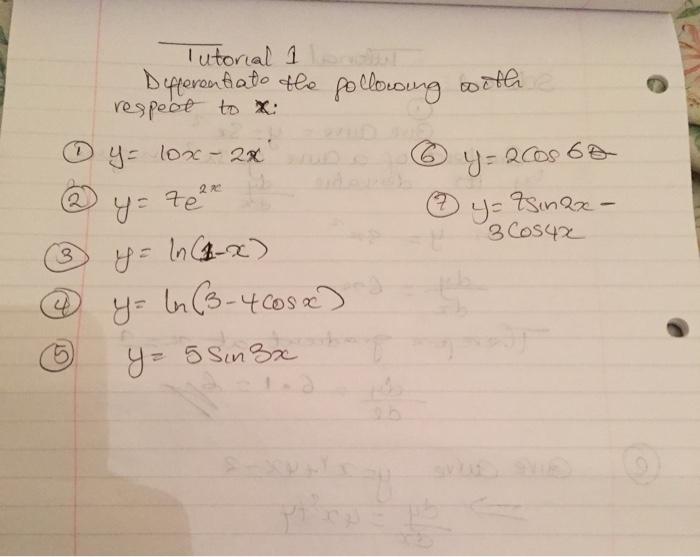 Tutorial 1
Differentiate the following with
respect to x:
① y= 10x - 2x
② y= 7e^2x
③ y= ln(1-x)
④ y= ln(3-4cosx)
⑤ y= 5sin3x
⑥ y= 2cos6θ
⑦ y= 7sin2x -
3cos4x